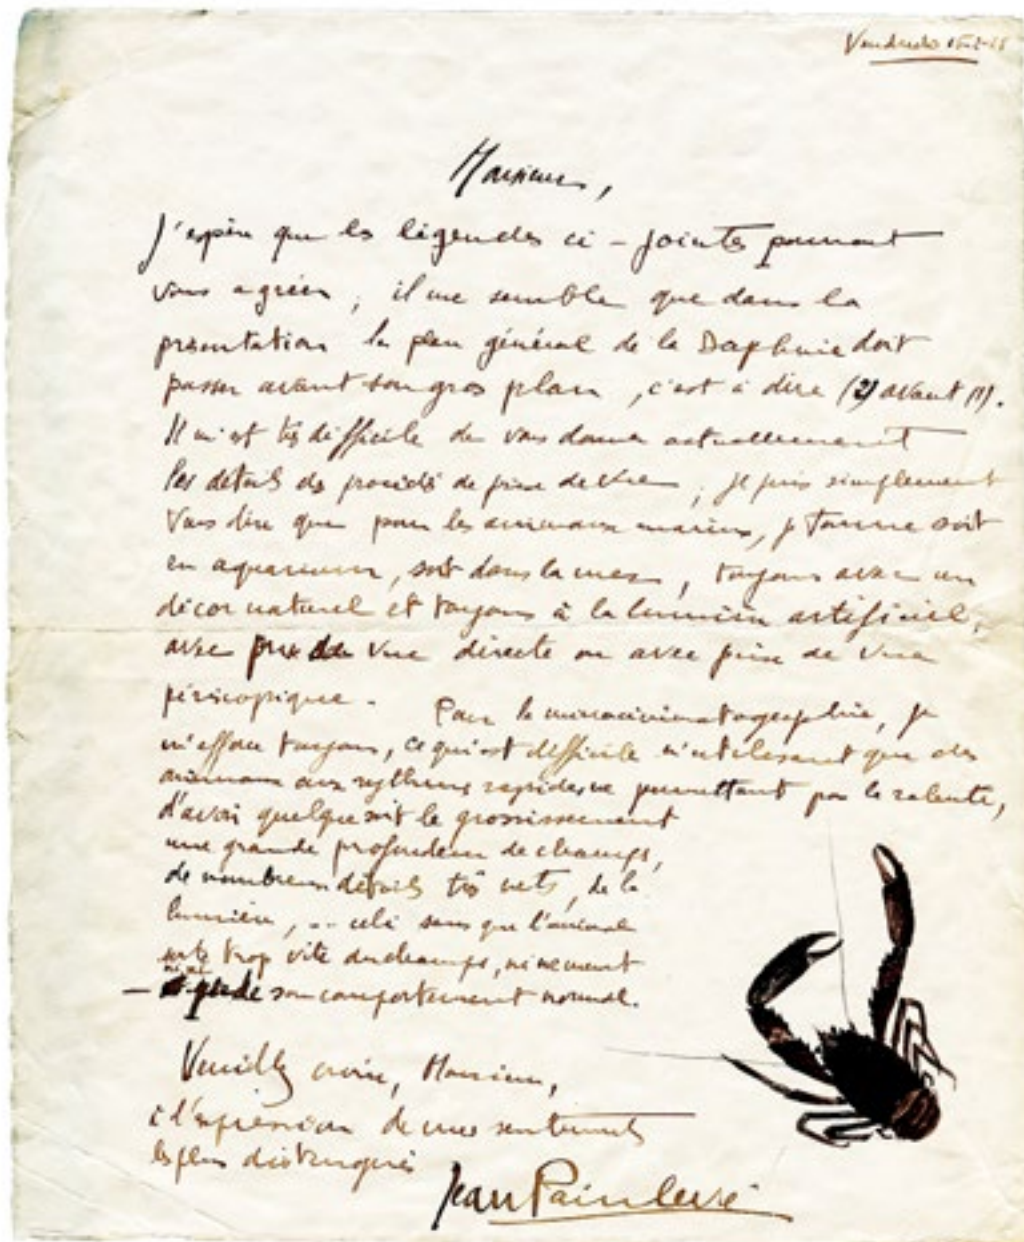 Vendredi
Monsieur,
J'espère que les légendes ci-jointes pourront
vous agréer ; il me semble que dans la
présentation le plan général de la Daphnie doit
passer avant son gros plan, c'est à dire (2) avant (1).
Il m'est très difficile de vous donner actuellement
les détails des procédés de prise de vue ; je puis simplement
vous dire que pour les animaux marins, je tourne soit
en aquarium, soit dans la mer, toujours avec un
décor naturel et toujours à la lumière artificiel,
avec prise de vue directe ou avec prise de vue
périscopique. Pour la microcinématographie, je
m'efforce toujours, ce qui est difficile n'utilisant que des
animaux aux rythmes rapides ne permettant pas le ralenti,
d'avoir quelque soit le grossissement
une grande profondeur de champs,
de nombreux détails très nets, de la
lumière, .. celà sans que l'animal
sorte trop vite du champs,
son comportement normal.
Veuillez croire, Monsieur,
à l'expression de mes sentiments
les plus distingués
Jean Painlevé